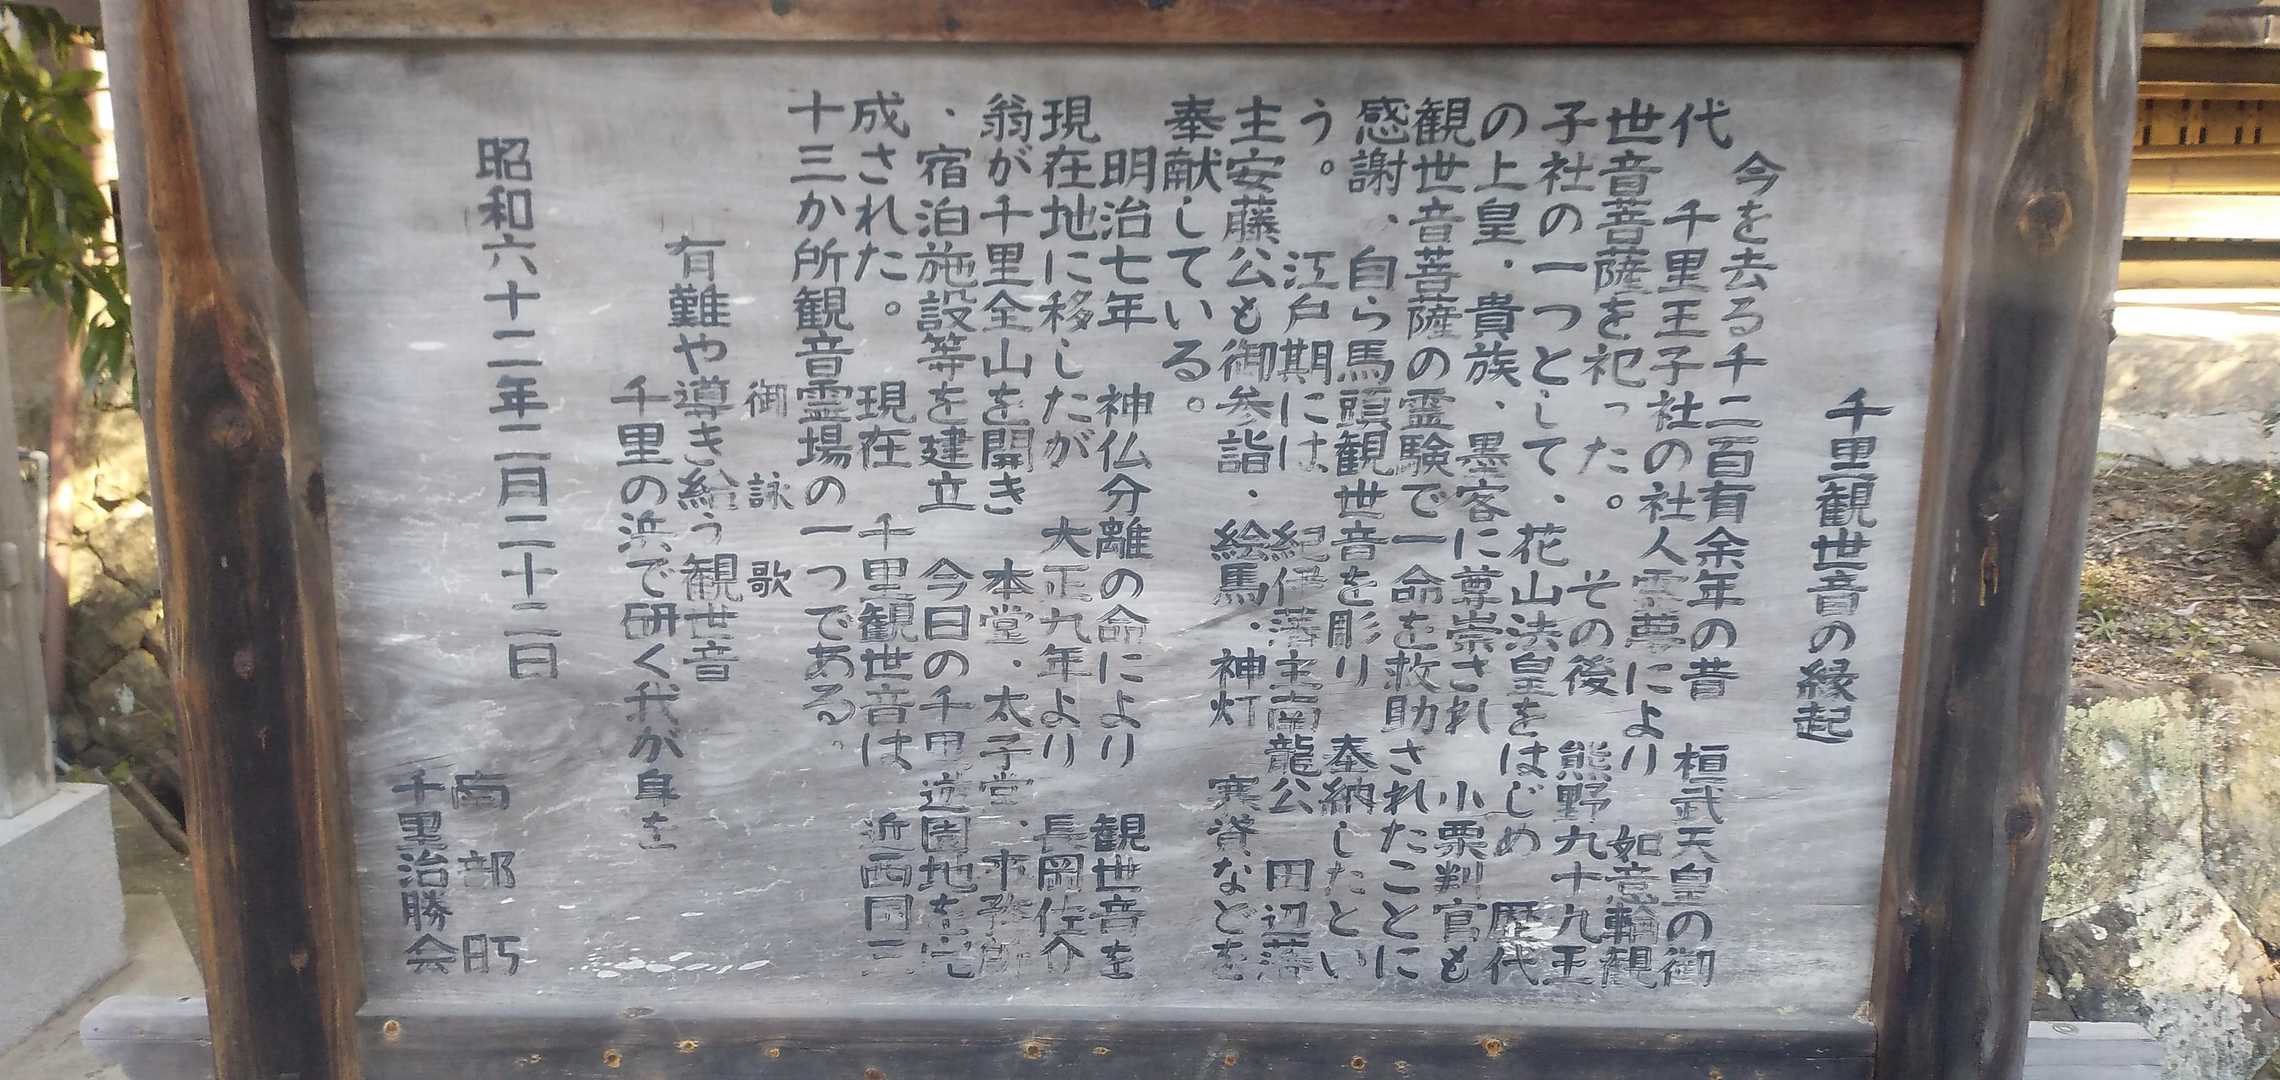 千里観世音の縁起
今を去る千二百有余年の昔 桓武天皇の御
代 千里王子社の社人 により 如意輪観
世音菩薩を祀った。 その後 熊野九十九王
子社の一つとして、花山法皇をはじめ 歴代
の上皇・貴族、墨客に尊崇され 小栗判官も
観世音菩薩の霊験で一命を救助されたことに
感謝、自ら馬頭観世音を彫り 奉納したとい
う。 江戸期には 紀伊藩主南龍公 田辺藩
主安藤公も御参詣、絵馬、神灯 などを
奉献している。
明治七年 神仏分離の命により 観世音を
現在地に移したが 大正九年より 長岡佐介
翁が千里全山を開き 本堂、太子堂、事務所
・宿泊施設等を建立 今日の千里遊園地を完
成された。 現在 千里観世音は 近西国三
十三か所観音霊場の一つである。
御詠歌
有難や導き給う観世音
千里の浜で研く我が身を
昭和六十二年二月二十二日
南部町
千里治勝会